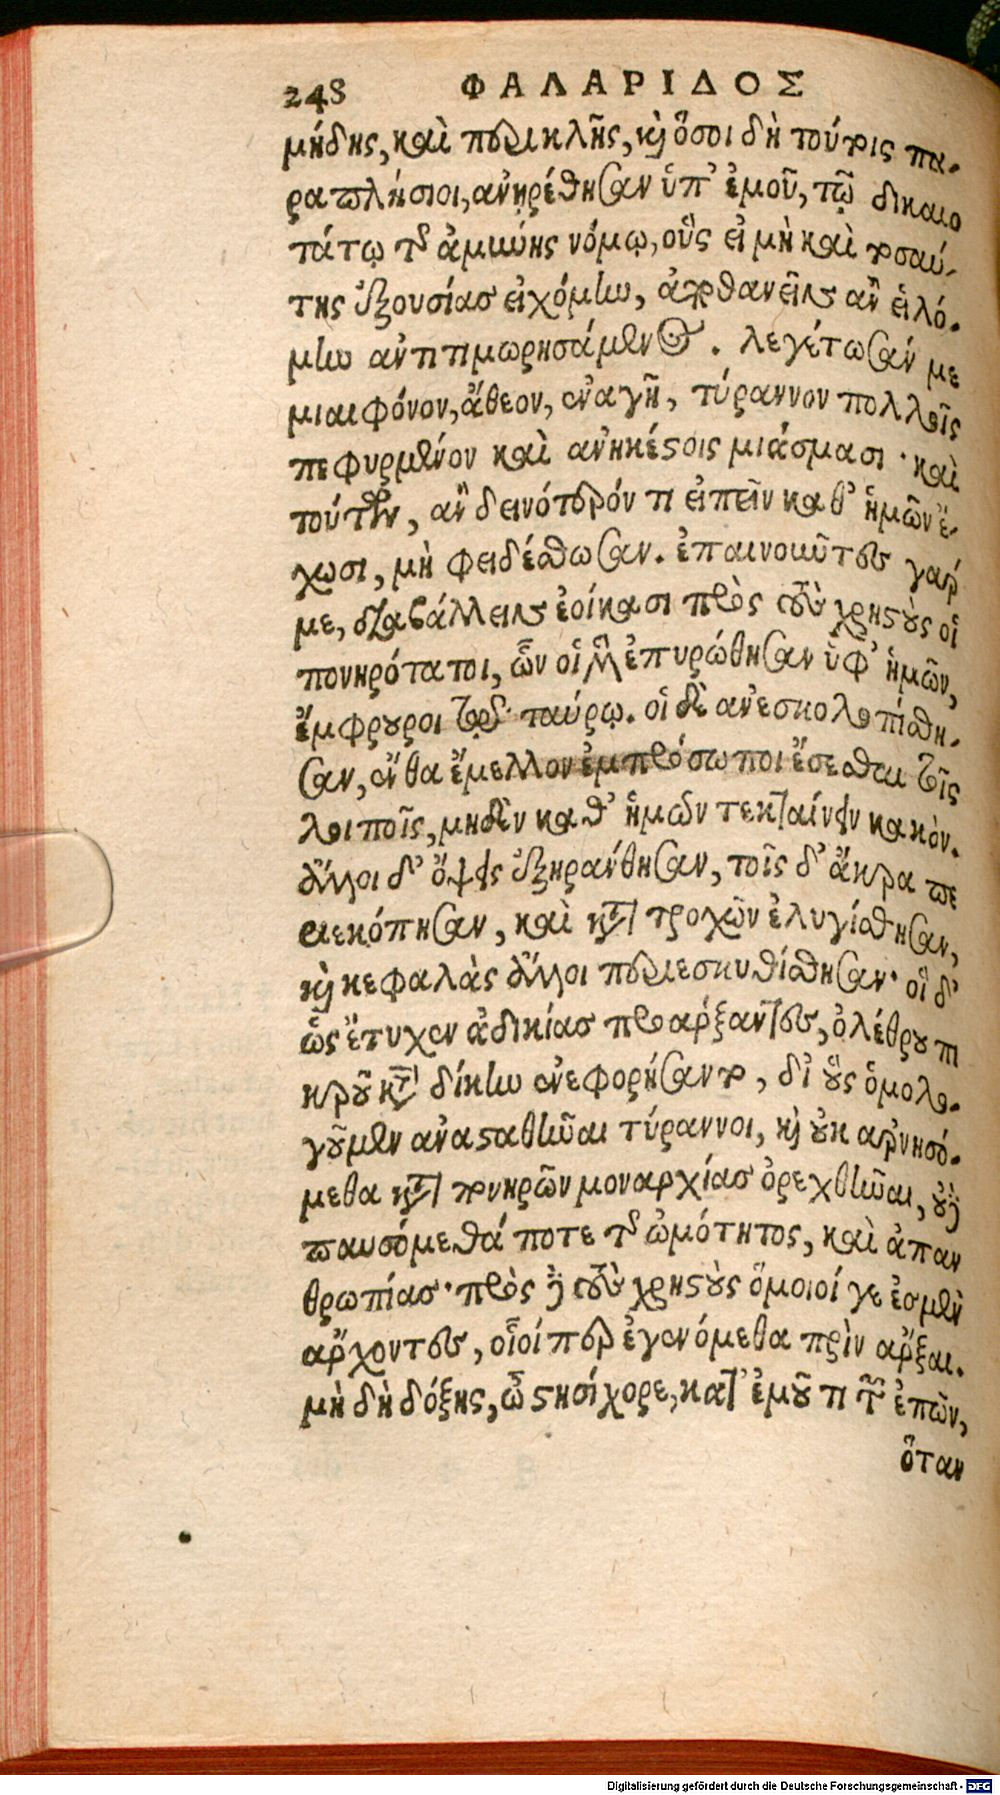 248 ΦΑΛΑΡΙΔΟΣ
μήδης, καὶ περικλῆς, κὶ ὅσοι δὴ τούτοις πα-
ραπλήσιοι, ἀνῃρέθησαν ὑπ' ἐμοῦ, τῷ δικαιο
τάτῳ τῆς ἀμύνης νόμῳ, οὓς εἰ μὴ καὶ τοσαύ-
της ἐξουσίας εἰχόμην, ἀποθανεῖν ἂν εἱλό-
μην ἀντιτιμωρησάμενος. λεγέτωσάν με
μιαιφόνον, ἄθεον, ἐναγῆ, τύραννον πολλοῖς
πεφυρμένον καὶ ἀνηκέστοις μιάσμασι· καὶ
τούτων, ἂν δεινότερόν τι εἰπεῖν καθ' ἡμῶν ἔ-
χωσι, μὴ φειδέσθωσαν. ἐπαινοῦντες γάρ
με, διαβάλλειν ἐοίκασι πρὸς τοὺς χρηστοὺς οἱ
πονηρότατοι, ὧν οἱ μὲν ἐπυρώθησαν ὑφ' ἡμῶν,
ἔμφρουροι τῷ ταύρῳ. οἱ δὲ ἀνεσκολοπίσθη-
σαν, ἔνθα ἔμελλον ἐμπρόσωποι ἔσεσθαι τοῖς
λοιποῖς, μηδὲν καθ' ἡμῶν τεκταίνειν κακόν.
ἄλλοι δ' ὄψεις ἐξηράνθησαν, τοῖς δ' ἄκρα πε
ριεκόπησαν, καὶ κατὰ τροχῶν ἐλυγίσθησαν,
κὶ κεφαλὰς ἄλλοι περιεσκυθίσθησαν· οἱ δ'
ὡς ἔτυχεν ἀδικίας προάρξαντες, ὀλέθρου πι
κροῦ κατὰ δίκην ἐνεφορήσαντο, δι' οὓς ὁμολο-
γοῦμεν ἀνασταθῆναι τύραννοι, κὶ οὐκ ἀρνησό-
μεθα κατὰ πονηρῶν μοναρχίας ὀρεχθῆναι, οὐδὲ
παυσόμεθά ποτε τῆς ὠμότητος, καὶ ἀπαν
θρωπίας· πρὸς δὲ τοὺς χρηστοὺς ὅμοιοί γε ἐσμὲν
ἄρχοντες, οἷοί περ ἐγενόμεθα πρὶν ἄρξαι.
μὴ δὴ δόξῃς, ὦ στησίχορε, κατ' ἐμοῦ τι τῶν ἐπῶν,
ὅταν
Digitalisierung gefördert durch die Deutsche Forschungsgemeinschaft - DFG